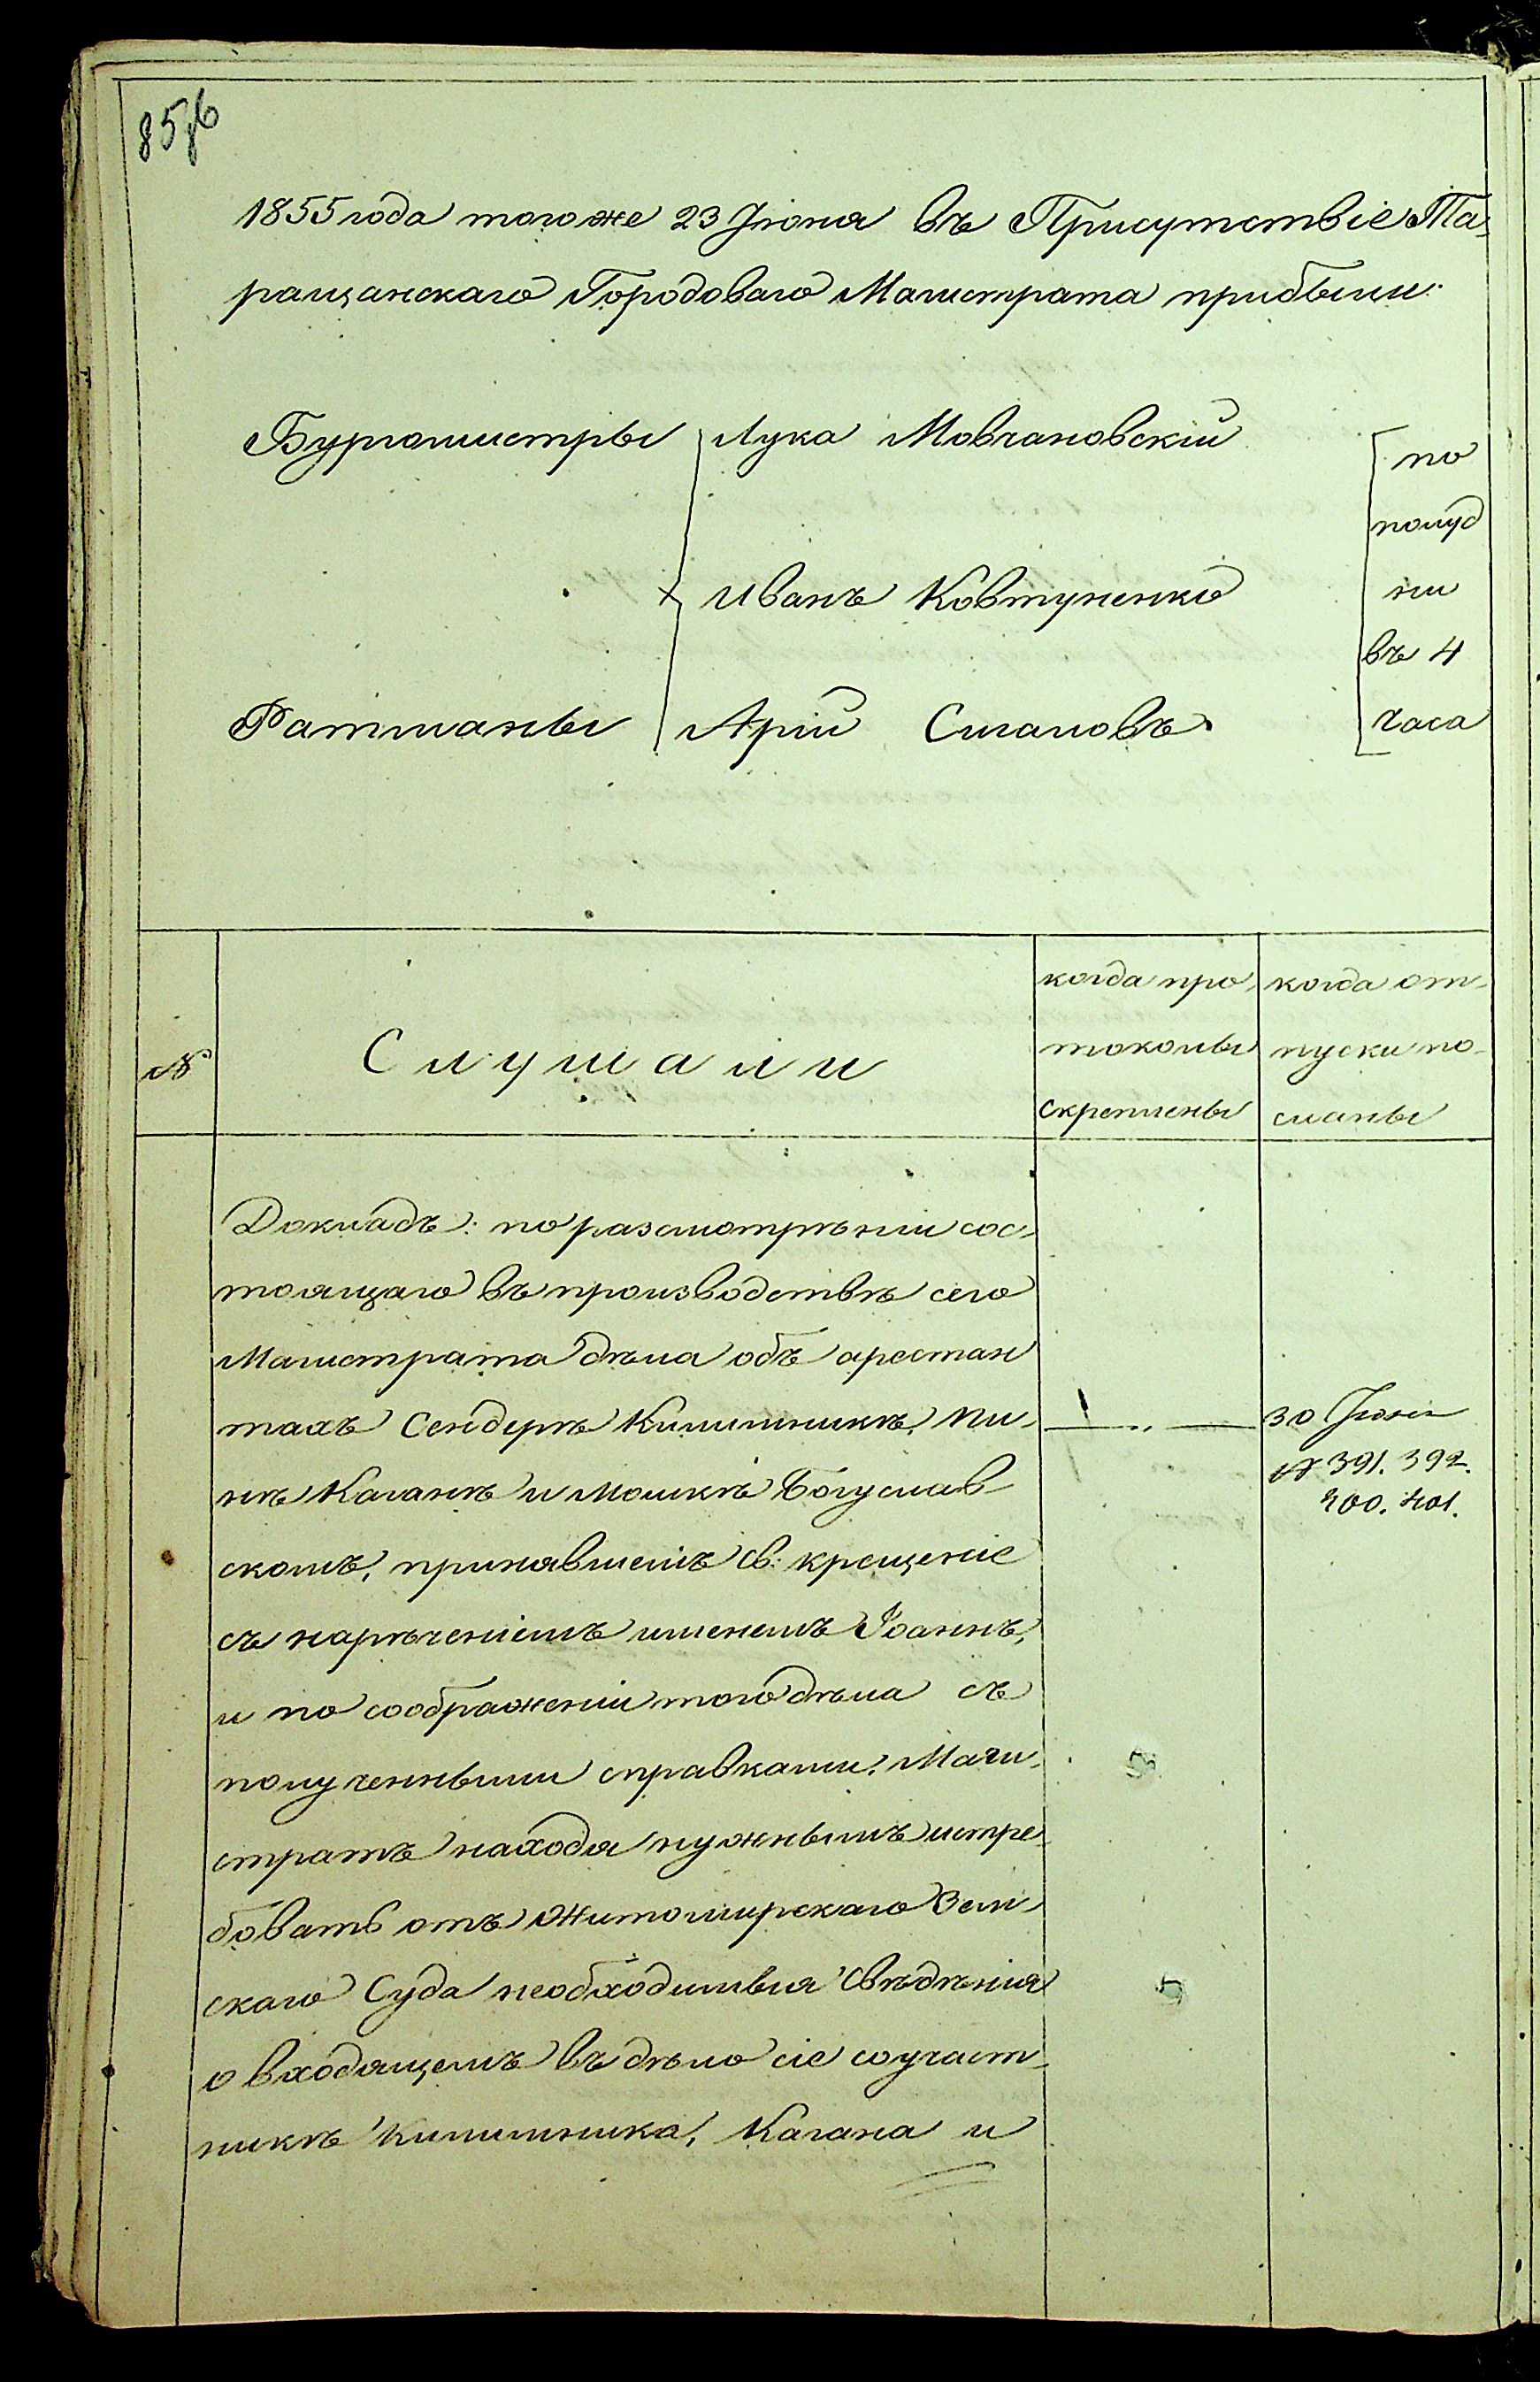 1855 года тогоже 23 Іюня въ Присутствіе Та-
ращанскаго Городоваго Магистрата прибыли:
Бургомистры Лука Мовчановскій
Иванъ Ковтуненко
Ратманы Арій Сигаловъ
по
полуд
ни
въ 4
часа
№
Слушали
когда про-
токолы
скреплены
когда от-
пуски по-
сланы
Докладъ: по разсмотрѣніи сос-
тоящаго въ производствѣ сего
Магистрата дѣла объ арестан
тахъ Сендерѣ Килимникѣ, Пи-
нѣ Каганѣ и Мошкѣ Богуслав
скомъ, принявшемъ св: крещеніе
съ нареченіемъ именемъ Іоаннъ,
и по соображеніи того дѣла съ
полученными справками, Маги-
стратъ находя нужнымъ истре-
бовать отъ Житомирскаго Зем-
скаго Суда необходимыя свѣдѣнія
о входящемъ въ дѣло сіе соучаст-
никѣ Килимника, Кагана и
30 Іюня
№ 391. 392.
400. 401.